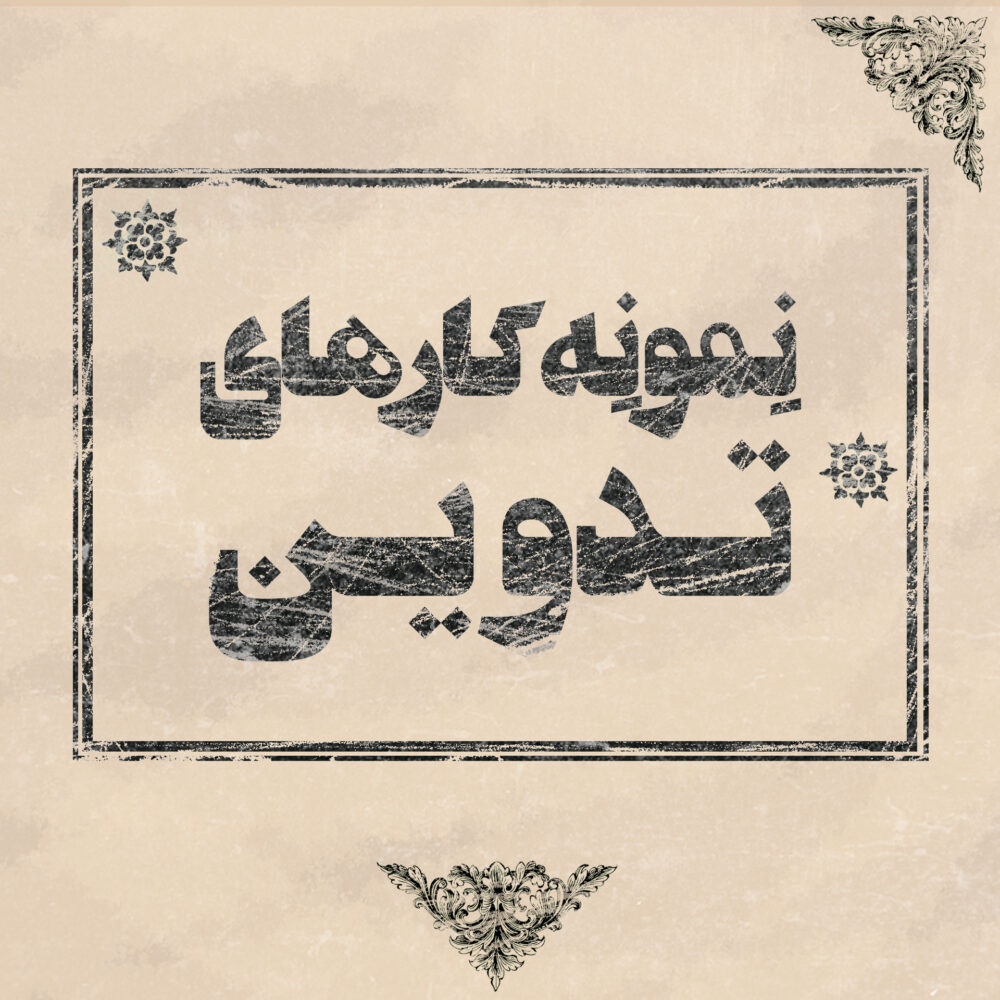 نِمونِه کارهای
تدوین